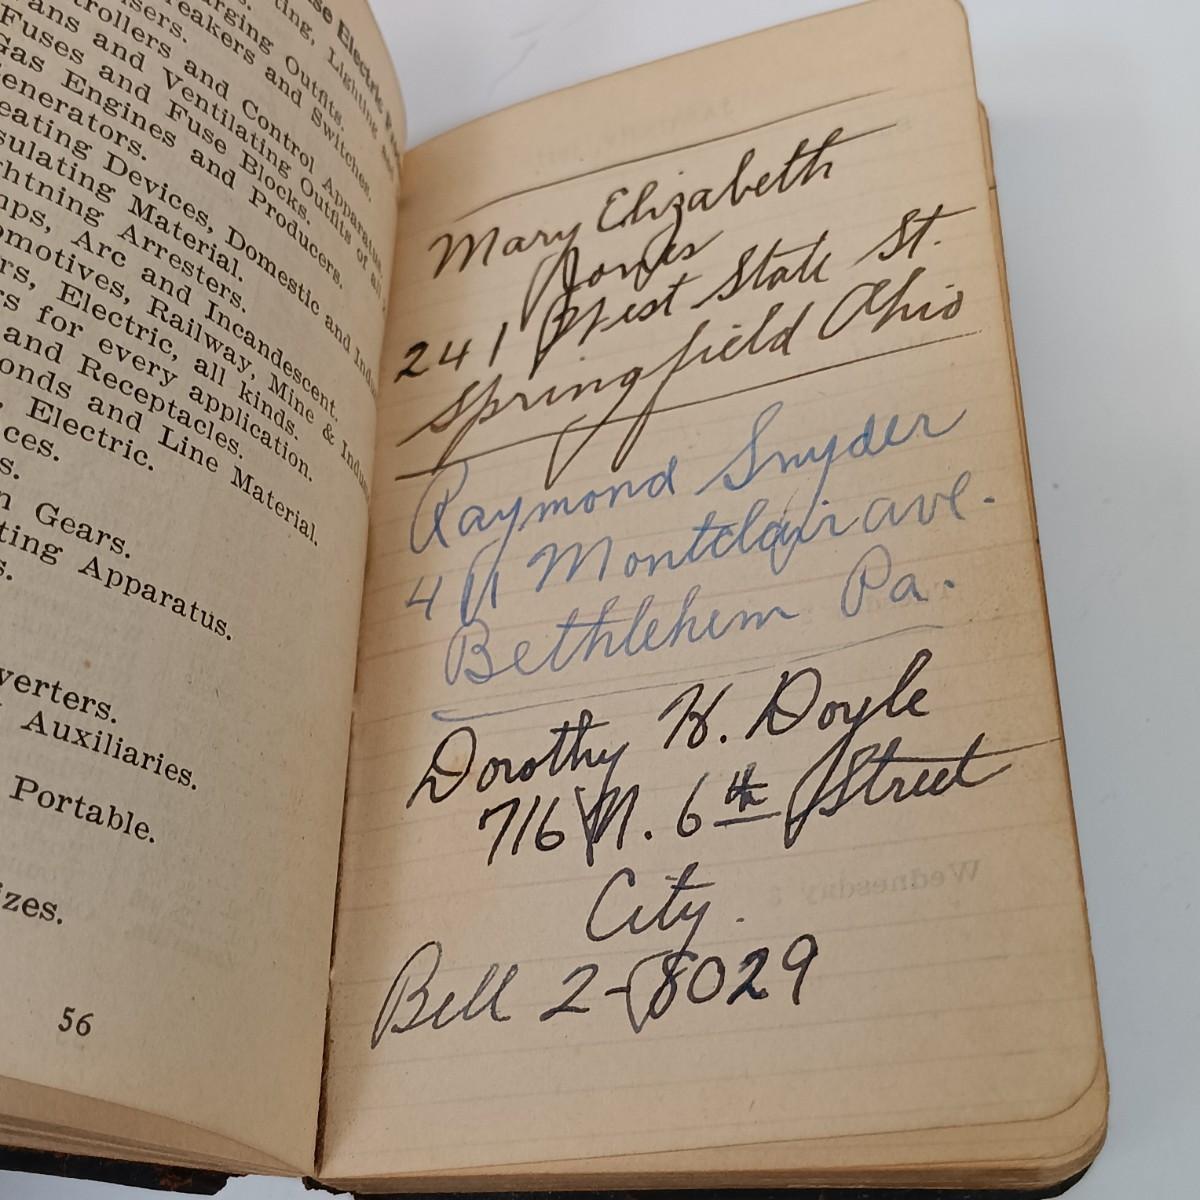 se Electric
ting, Lighting and
arging Outfits.
reakers and Switches.
trollers and Control Apparatus.
ans and Ventilating Outfits of all
Fuses and Fuse Blocks.
Gas Engines and Producers.
enerators.
eating Devices, Domestic and Indus
sulating Material.
ghtning Arresters.
mps, Arc and Incandescent.
omotives, Railway, Mine & Indus
rs, Electric, all kinds.
rs for every application.
and Receptacles.
onds and Line Material.
, Electric.
ces.
s.
n Gears.
ting Apparatus.
s.
verters.
Auxiliaries.
Portable.
izes.
56
Mary Elizabeth
Jones
241 West State St.
Springfield Ohio
Raymond Snyder
411 Montclair ave.
Bethlehem Pa.
Dorothy H. Doyle
716 N. 6th Street
City.
Bell 2-8029
Wednesday